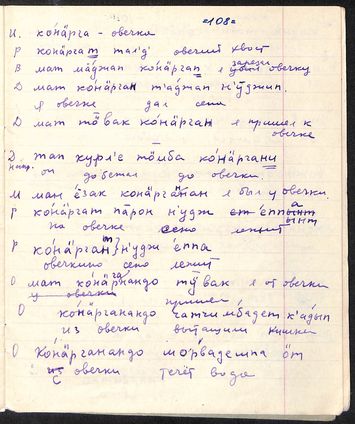 =108=
И. ко́нӓрга - овечка
Р ко́нӓргат талʼдʼ овечий хвост
В мат ма́джап ко́нӓргап я зарезал овечку
Д мат ко́нӓргӓн тʼа́джап нʼӱджип.
я овечке дал сена
Д мат тӧ̄вак ко́нӓргӓн я пришел к
овечке
Д тап курлʼе тӧ̄мба ко́нӓргани
он добежал до овечки.
М ман е̄зак конӓрганан я был у овечки.
Р ко́нӓргат па̄рон нʼудж еппынт
на овечке сено лежит
Р ко́нӓргат нʼудж еппа
овечкино сено лежит
О мат ко́нӓргандо тӱвак я от овечки
пришел
О ко́нӓргандо
из овечки вытащили кишки
О ко́нӓргандо мо́рвадемпа ӧт
из овечки течёт вода